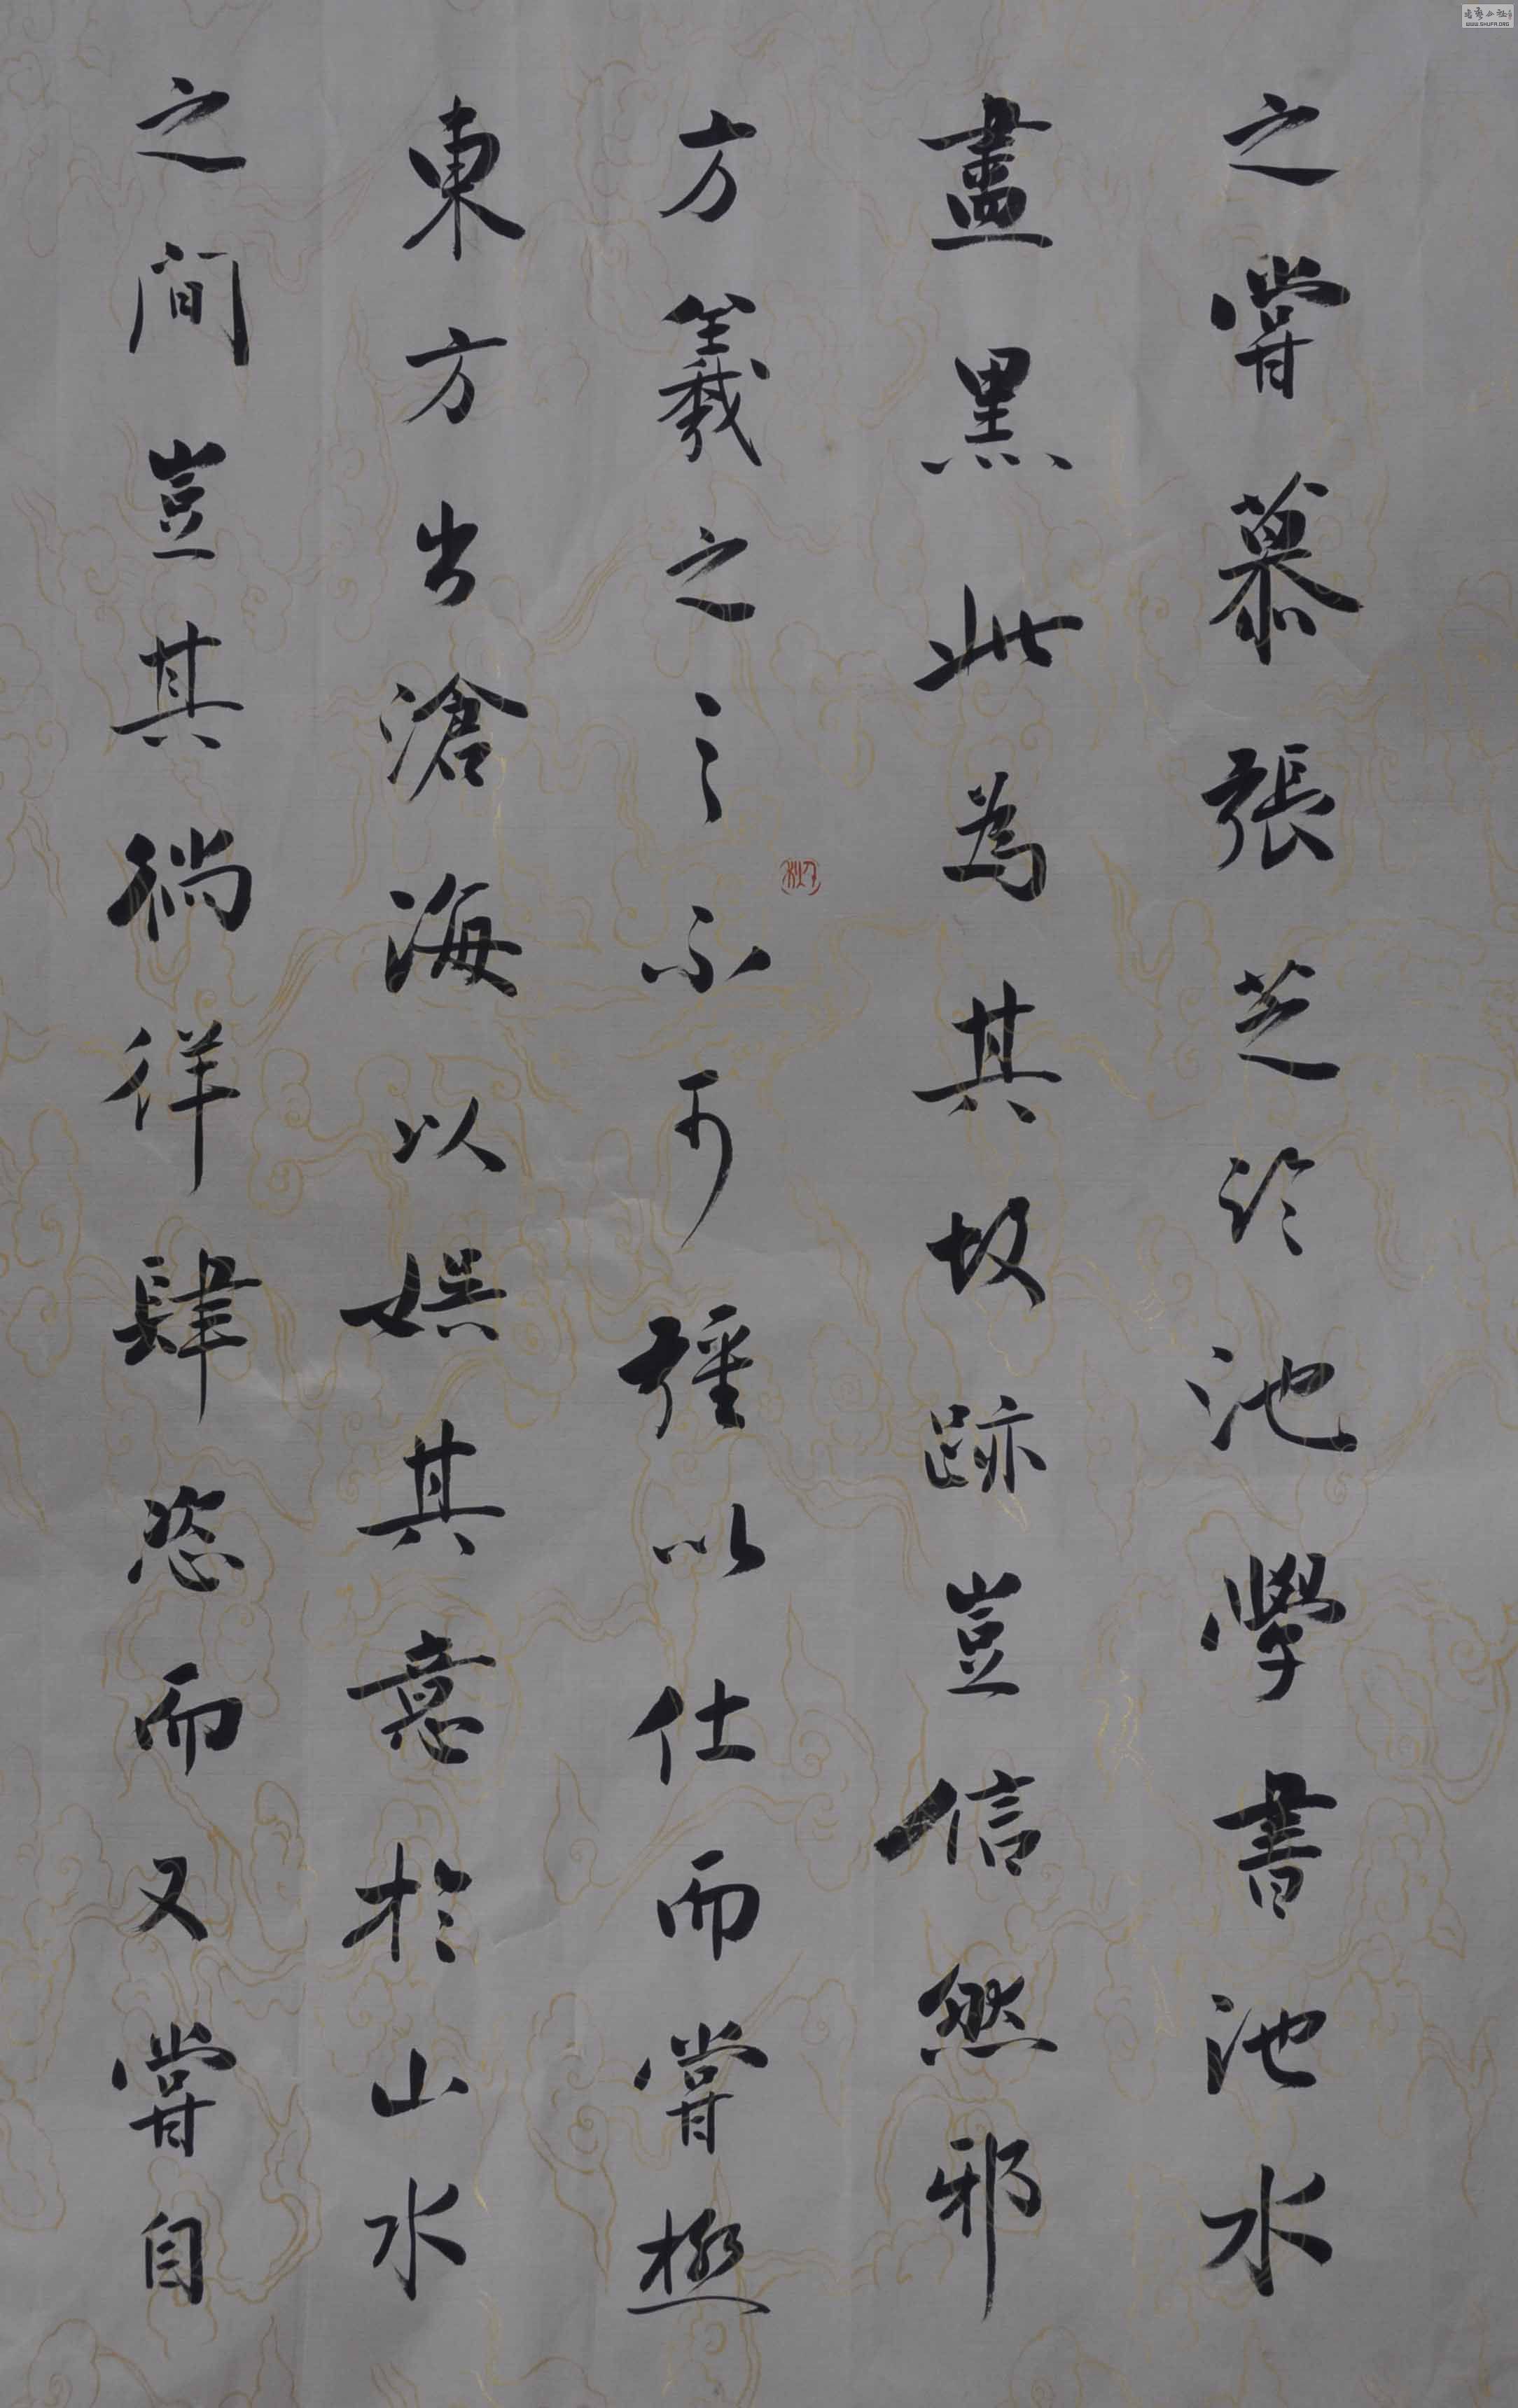 之嘗慕張芝於池學書池水
盡黑此為其故跡豈信然邪
方羲之之不可強以仕而嘗極
東方出滄海以娛其意於山水
之間豈其徜徉肆恣而又嘗自
WWW.SHUFA.ORG